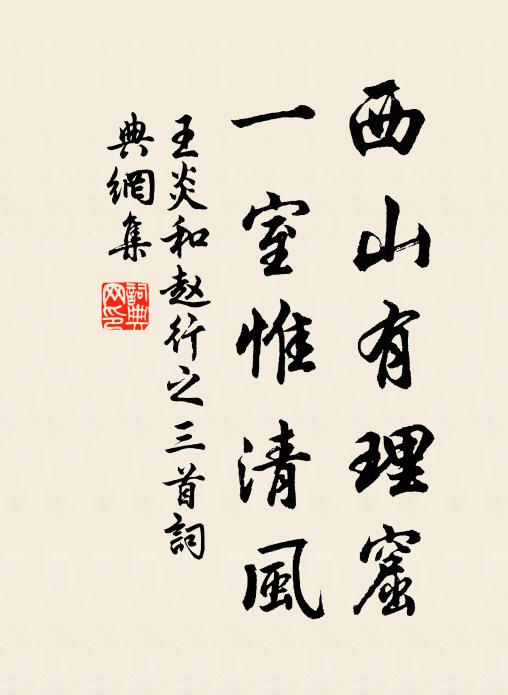 西山有理窟
一室惟清風
王炎和赵行之三首詞
典網集
詞典
网印